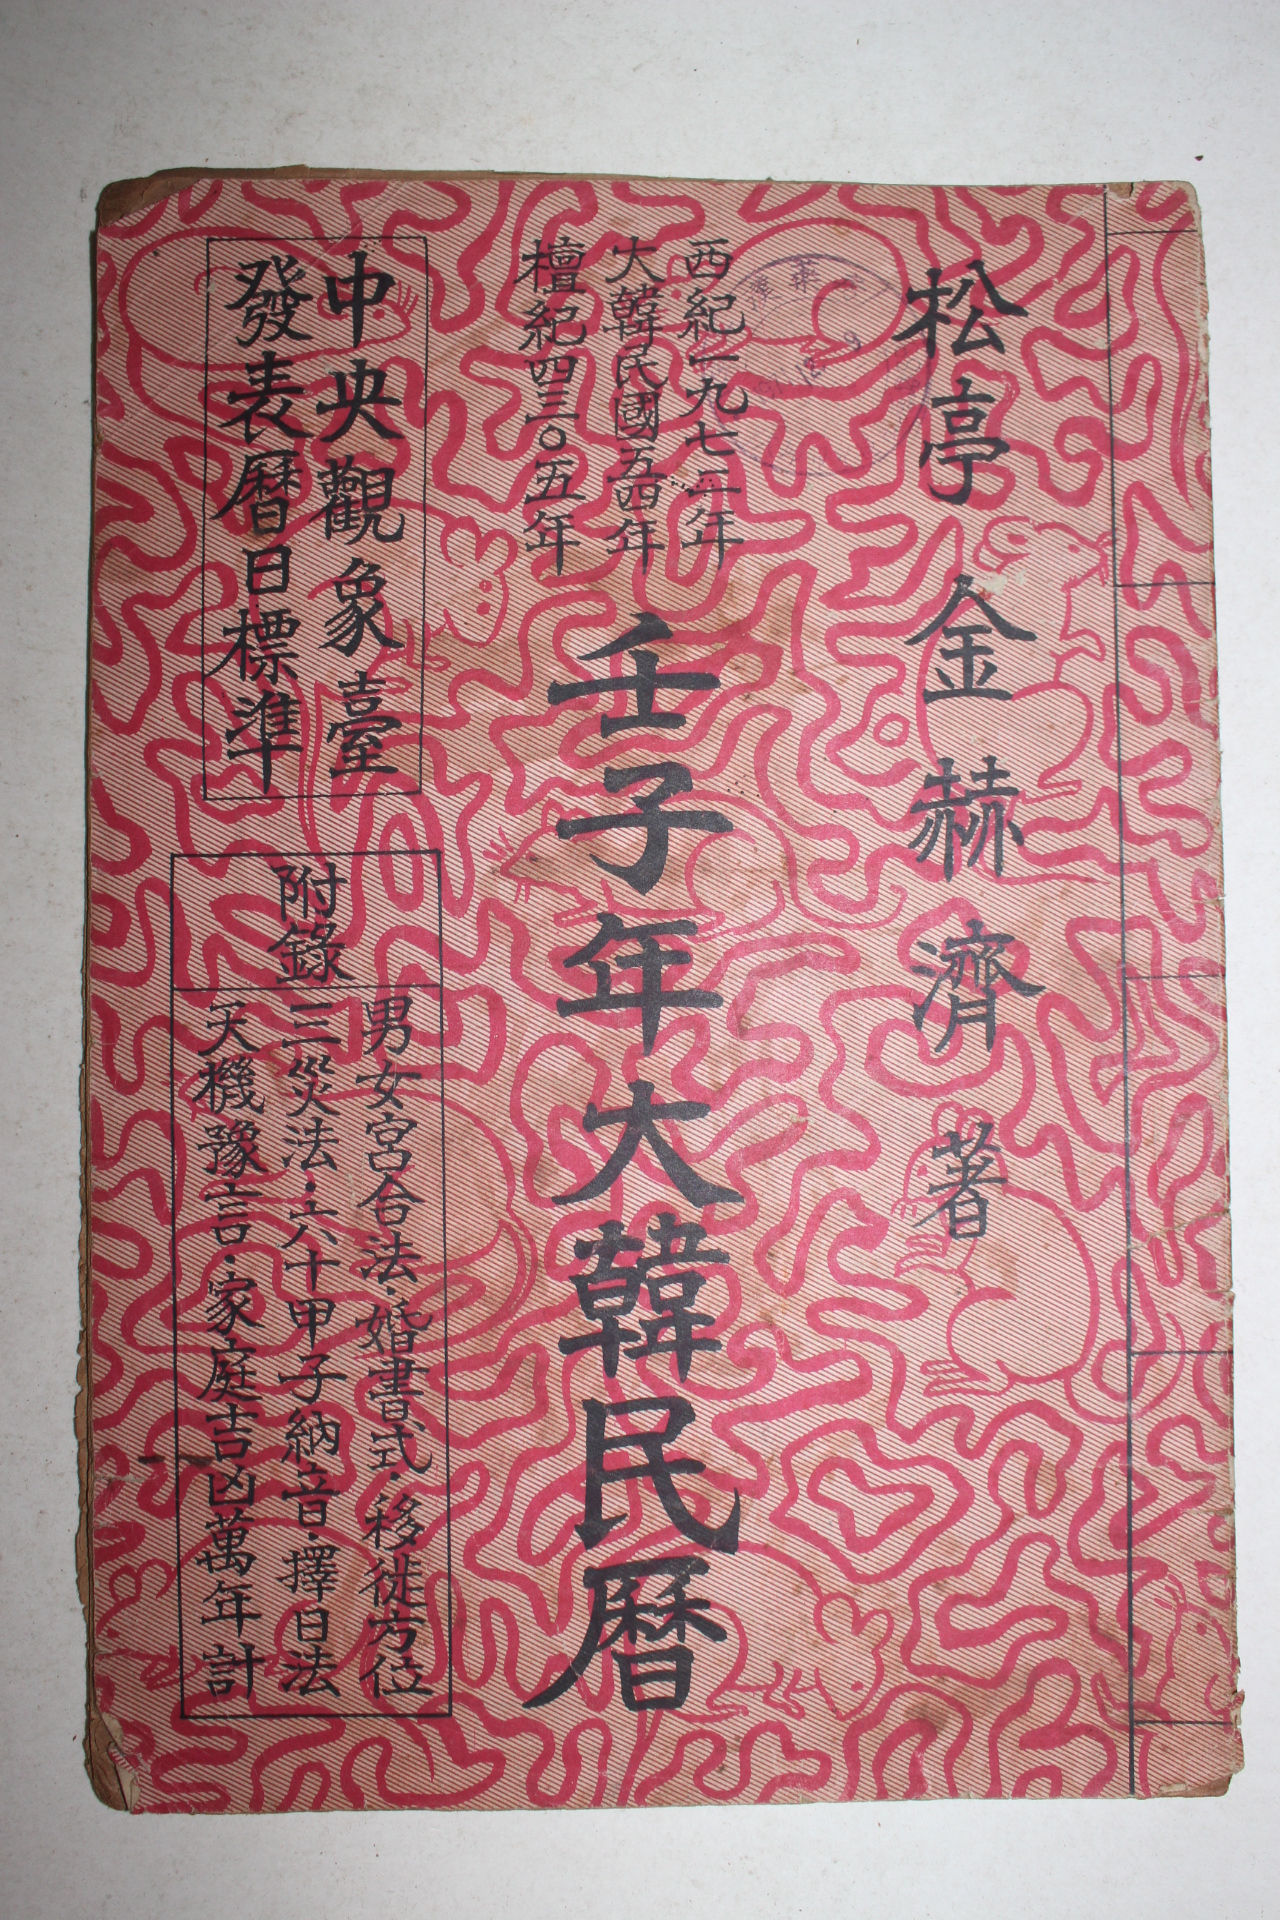 松亭 金赫濟 著
西紀一九七二年
大韓民國五四年
檀紀四三〇五年
壬子年大韓民曆
中央觀象臺
發表曆日標準
附錄
男女宮合法·婚書式·移徙方位
三災法·六十甲子納音·擇日法
天機豫言·家庭吉凶萬年計